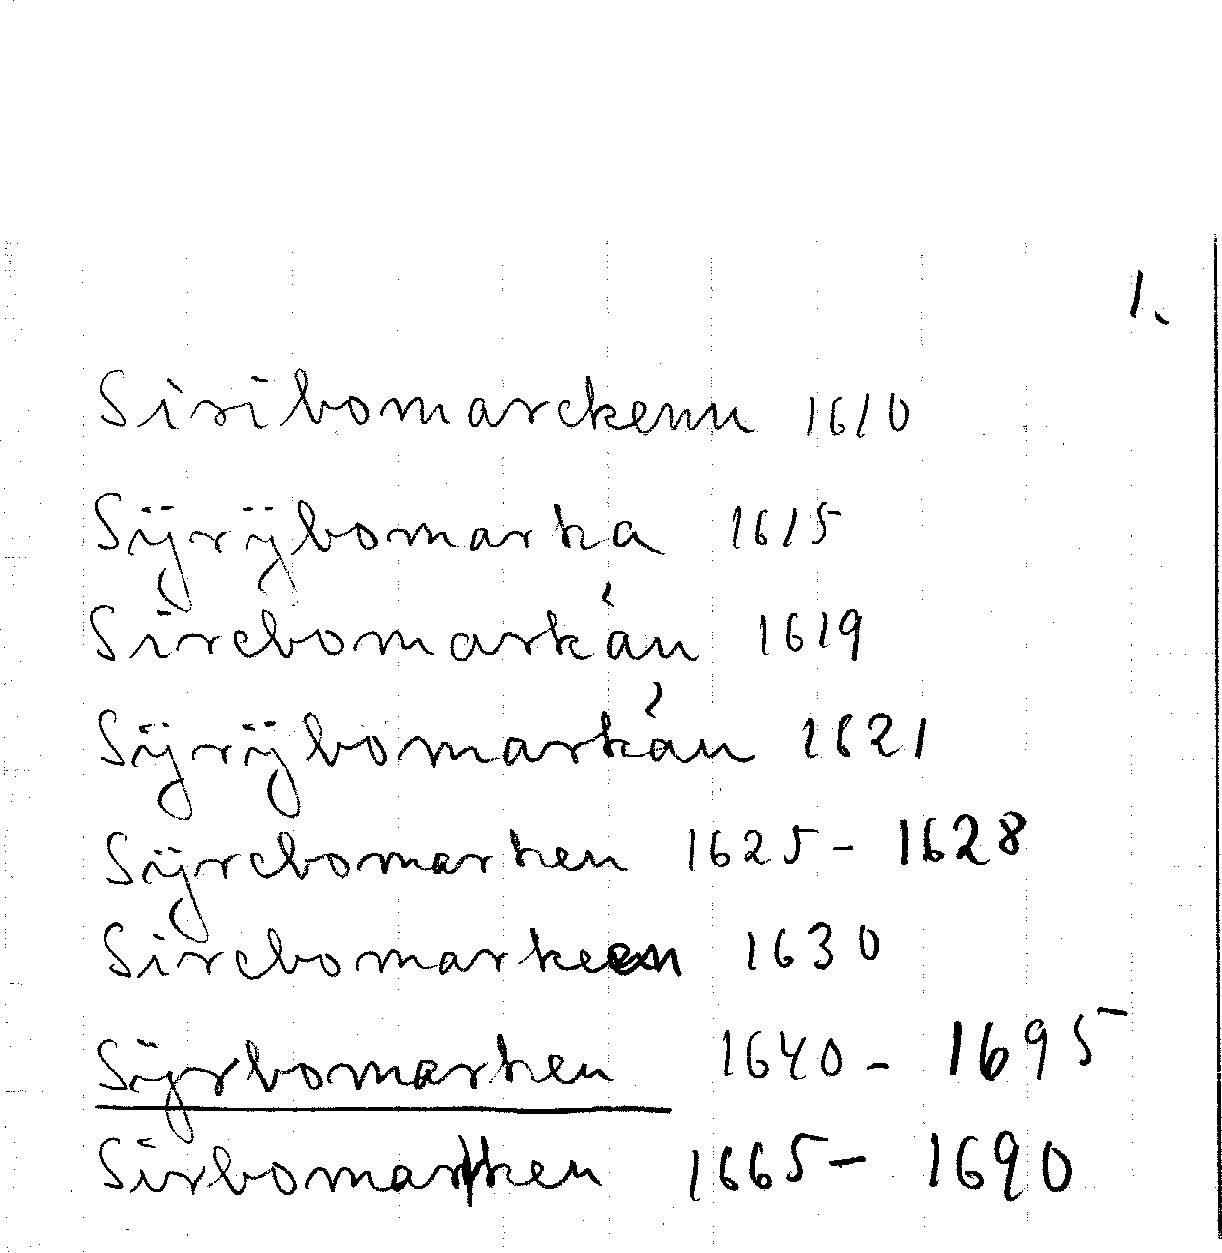 1.
Siribomarckenn 1610
Sÿrÿbomarka 1615
Sirebomarkån 1619
Sÿrÿbomarkån 1621
Sÿrebomarken 1625 - 1628
Sirebomarkeen 1630
Sÿrbomarken 1640 - 1695
Sirbomarken 1665 - 1690